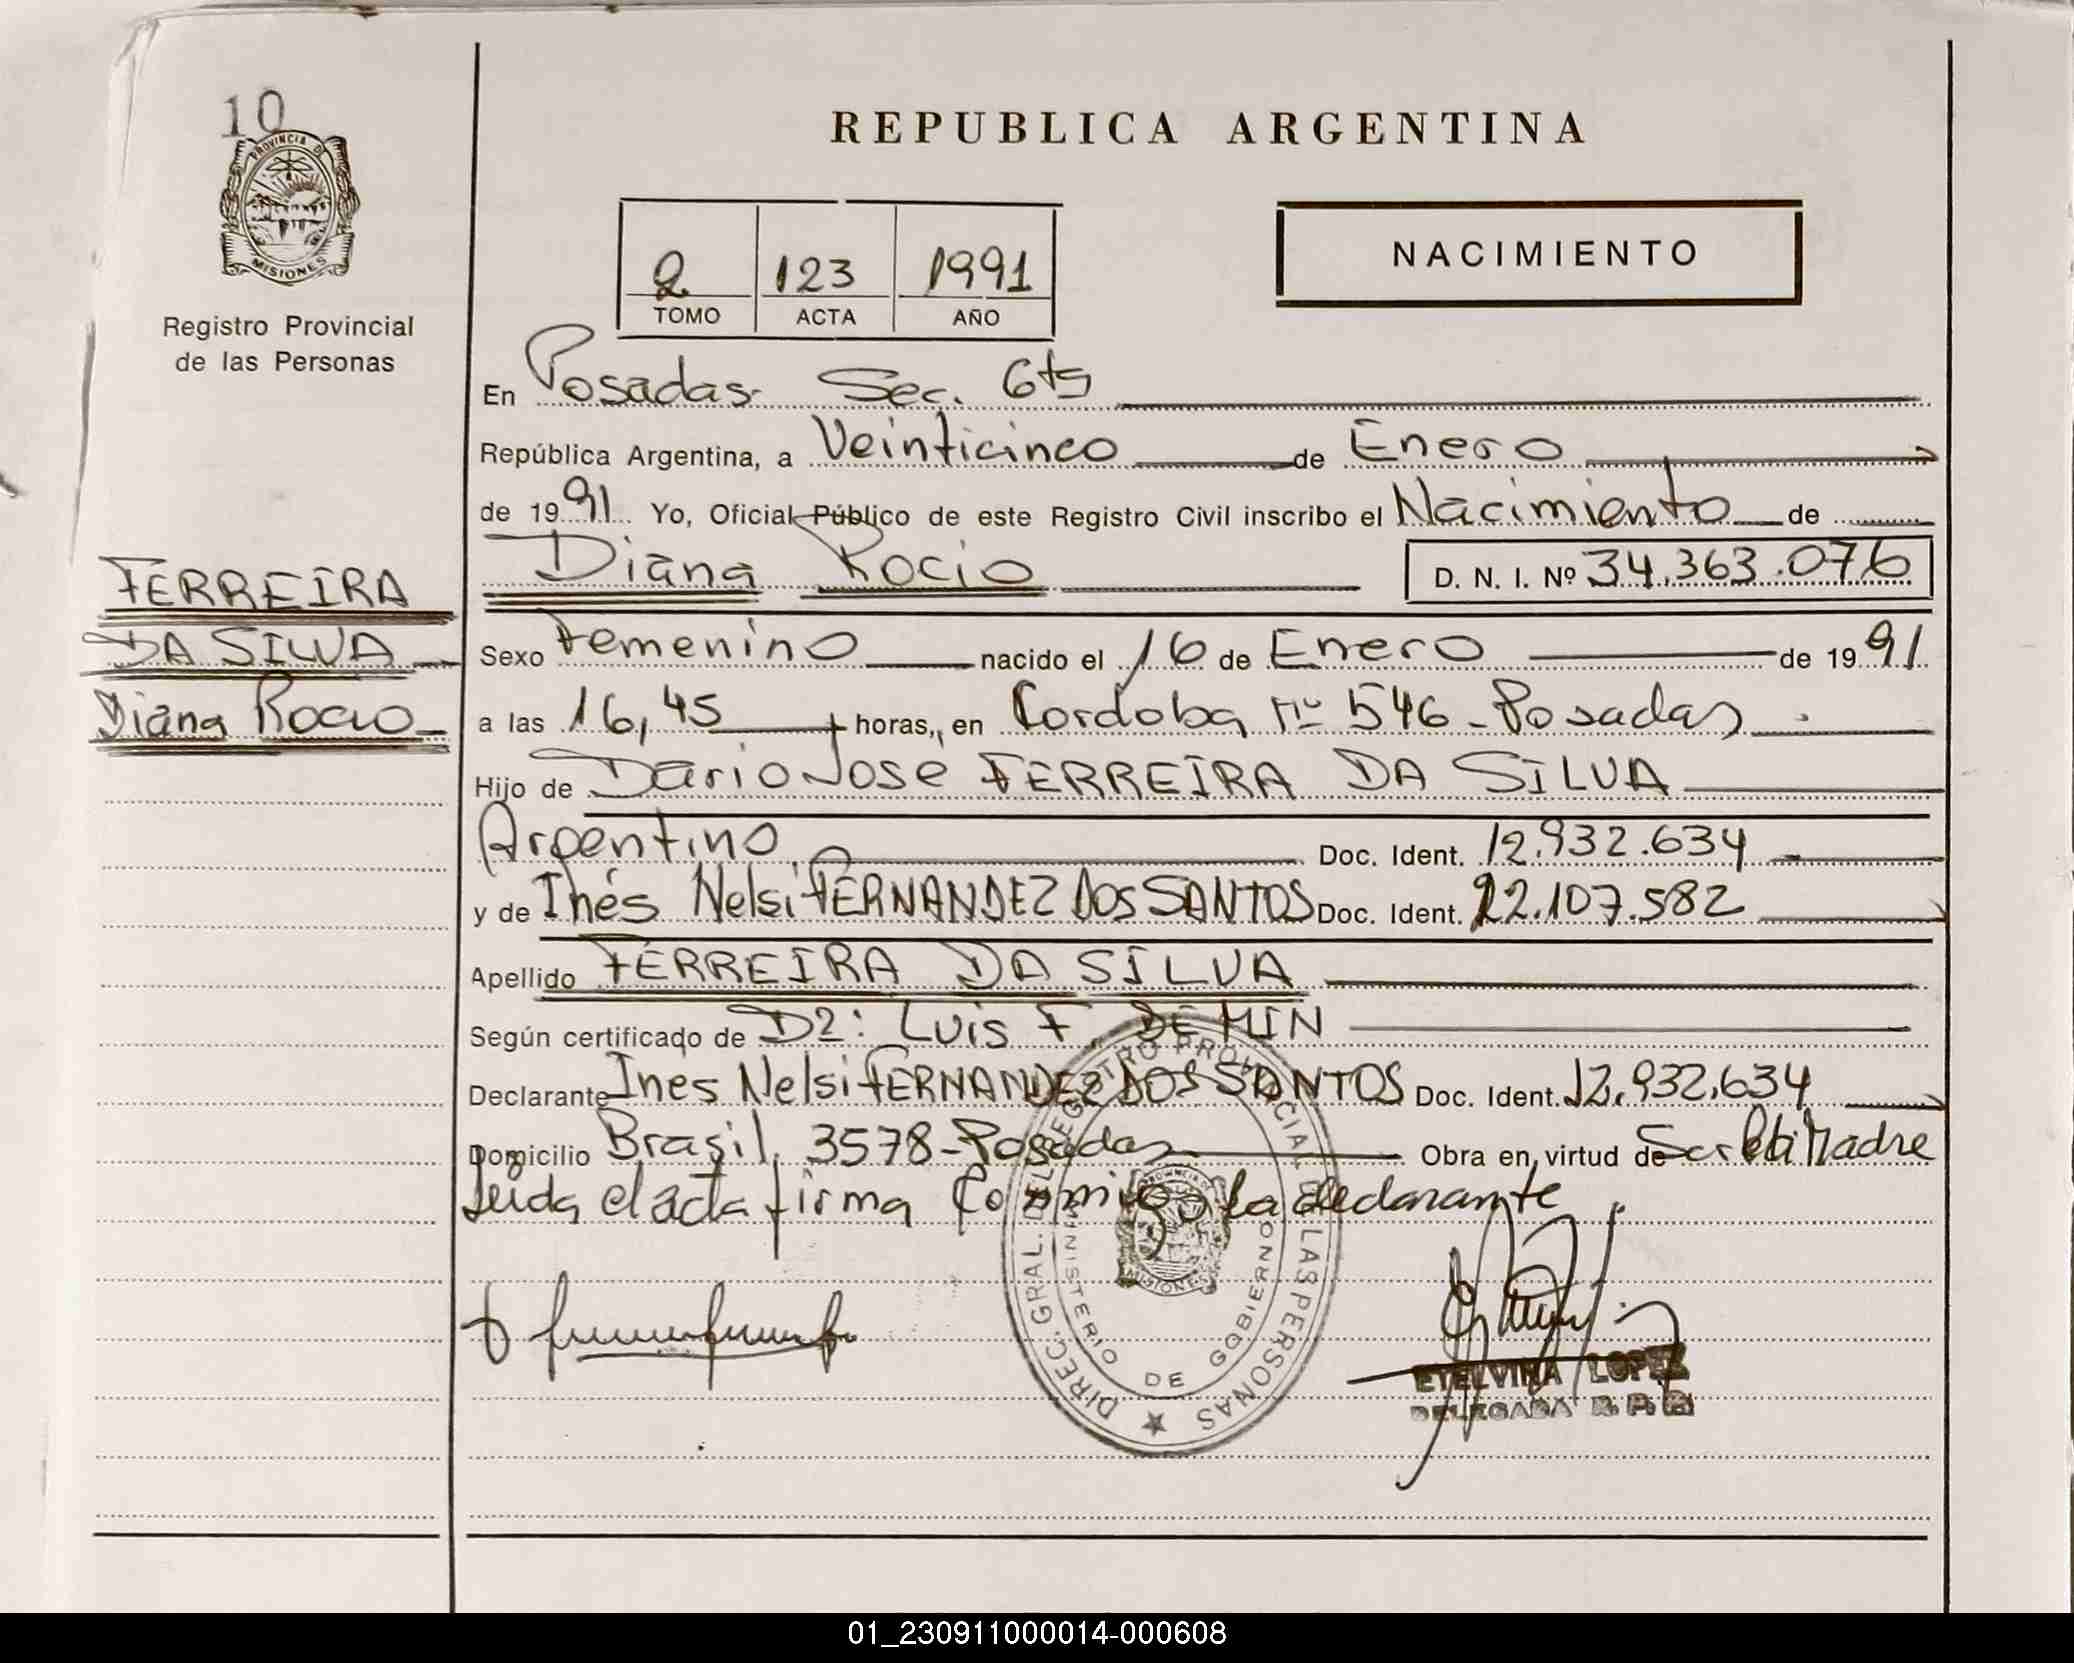 10
PROVINCIA D
MISIONES
Registro Provincial
de las Personas
REPUBLICA ARGENTINA
2 123 1991
TOMO ACTA AÑO
NACIMIENTO
En Posadas. Sec. 6ta
República Argentina, a Veinticinco de Enero
de 1991 Yo, Oficial Público de este Registro Civil inscribo el Nacimiento de
Diana Rocio D. N. I. Nº 34.363.076
FERREIRA
DA SILVA
Diana Rocio
Sexo Femenino nacido el 16 de Enero de 1991
a las 16,45 horas, en Cordoba nº 546 - Posadas
Hijo de Dario Jose FERREIRA DA SILVA
Argentino Doc. Ident. 12.932.634
y de Inés Nelsi FERNANDEZ DOS SANTOS Doc. Ident. 22.107.582
Apellido FERREIRA DA SILVA
Según certificado de D2: Luis F. DEMIN
Declarante Ines Nelsi FERNANDEZ DOS SANTOS Doc. Ident. 12.932.634
Domicilio Brasil 3578 - Posadas Obra en virtud de Ser la Madre
Leida el acta firma Conmigo la declarante.
DIREC. GRAL. DEL REGISTRO PROVINCIAL DE LAS PERSONAS
MINISTERIO DE GOBIERNO
MISIONES
ETELVINA LOPEZ
DELEGADA R. P. P.
01_230911000014-000608